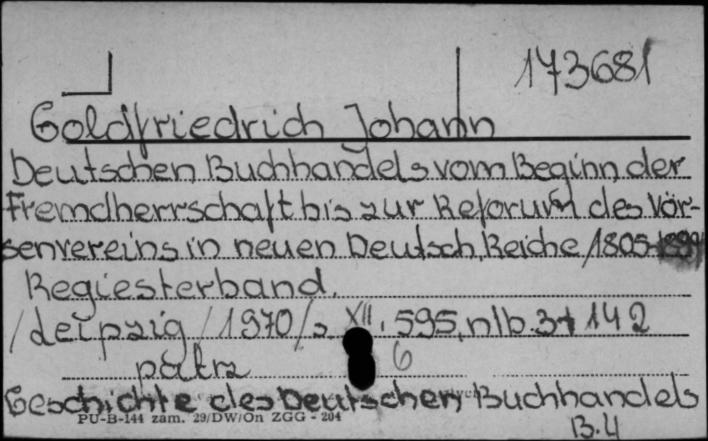 173681
Goldfriedrich Johann
Deutschen Buchhandels vom Beginn der
Fremdherrschaft bis zur Reforum des Vör-
senvereins in neuen Deutsch. Reiche /1805-1899
Regiesterband.
/Leipzig /1970/s. XII, 595, nlb. 3+142
patrz 6
Geschichte des Deutschen Buchhandels
PU-B-144 zam. 29/DW/On ZGG - 204
B.4